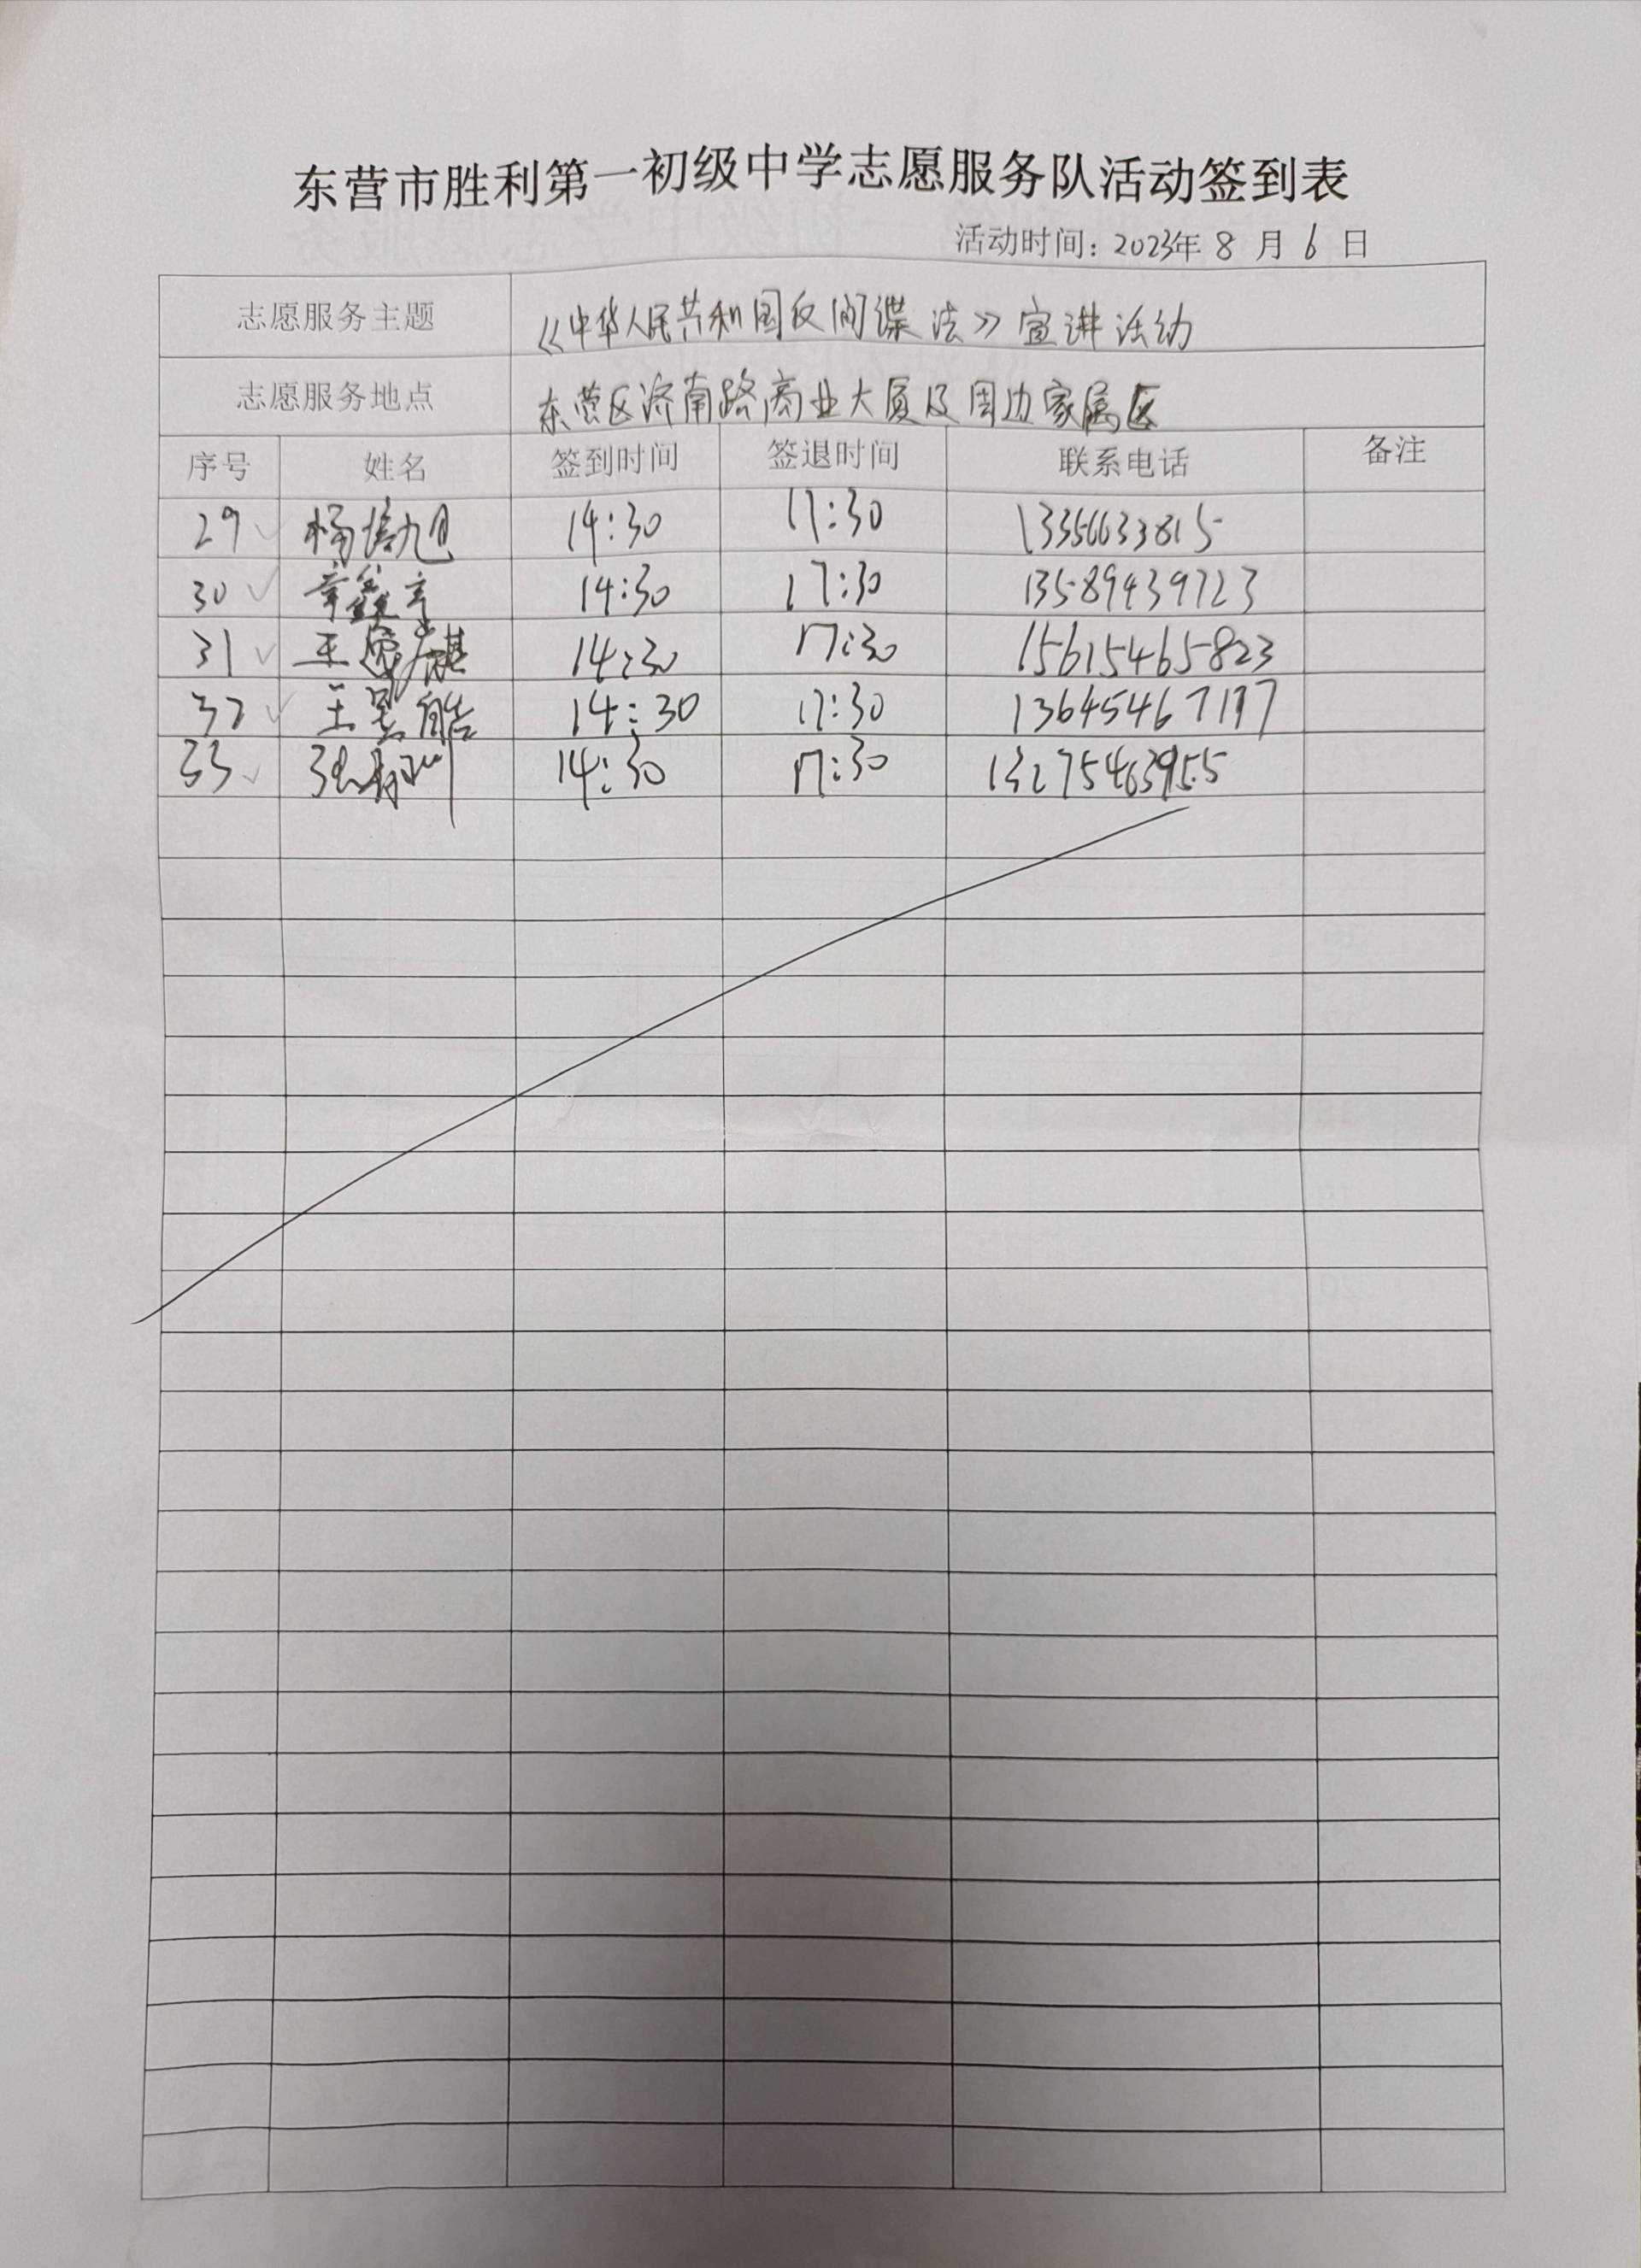 东营市胜利第一初级中学志愿服务队活动签到表
活动时间：2023年 8 月 6 日
志愿服务主题 《中华人民共和国反间谍法》宣讲活动
志愿服务地点 东营区济南路商业大厦及周边家属区
序号 姓名 签到时间 签退时间 联系电话 备注
29 14:30 17:30 13356633815
30 14:30 17:30 13589439723
31 14:30 17:30 15615465823
32 14:30 17:30
33 14:30 17:30 13275463955